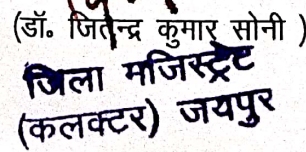 (डॉ. जितेन्द्र कुमार सोनी )
जिला मजिस्ट्रेट
(कलक्टर) जयपुर